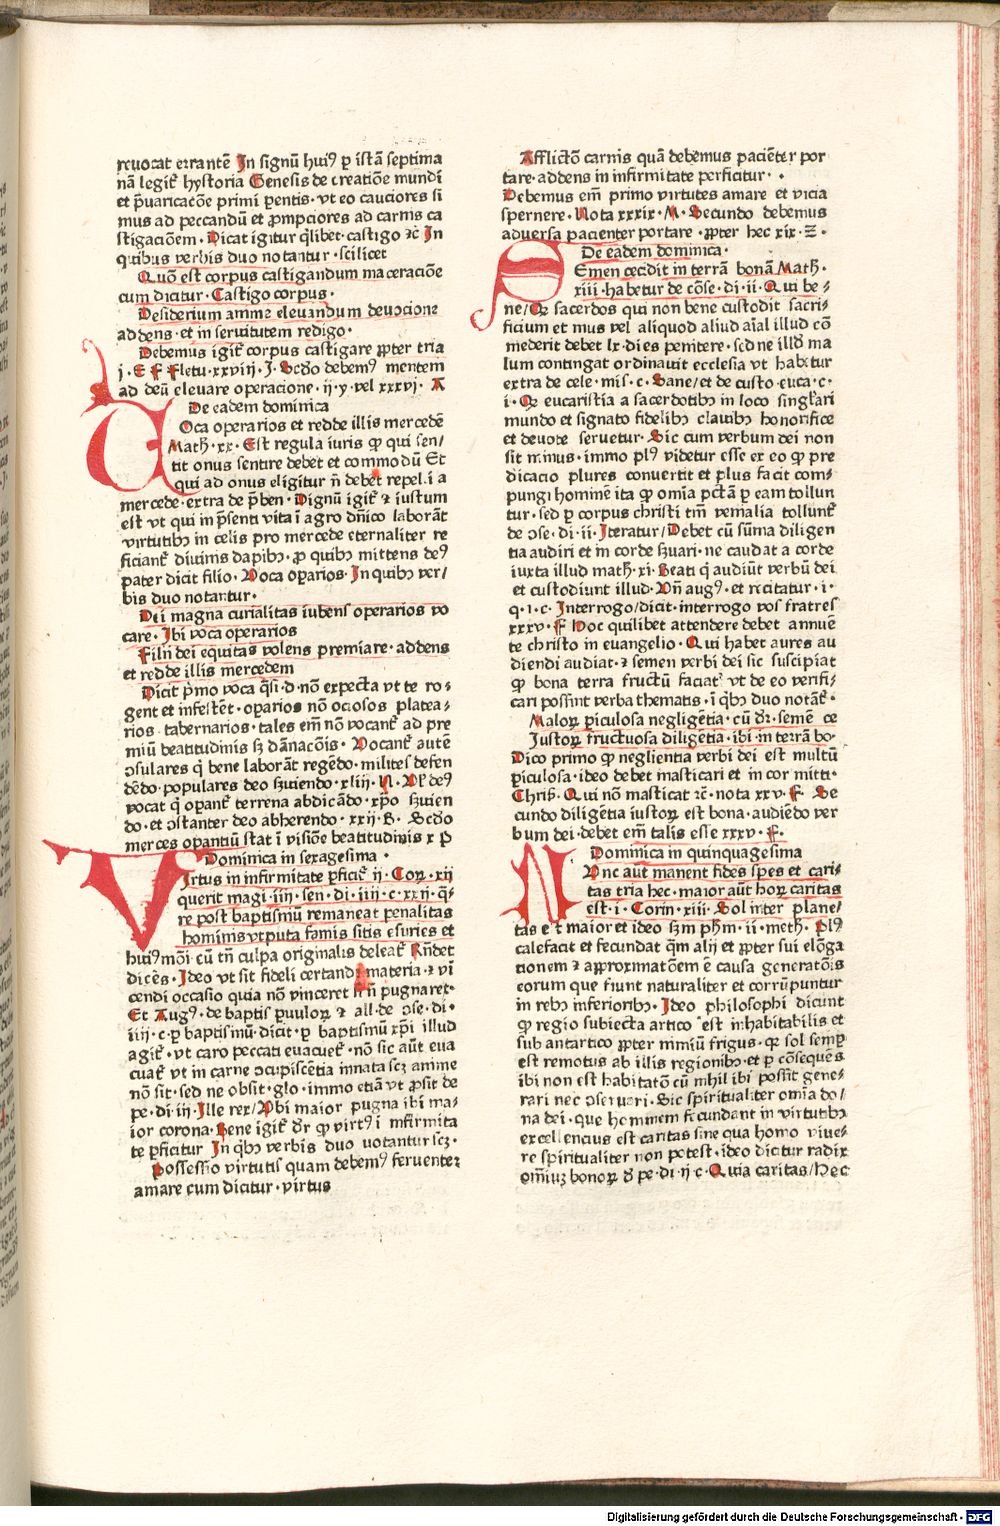 reuocat errantē In signū huiꝰ ꝑ istā septima
nā legit᷑ hystoria Genesis de creatiōe mundi
et p̄uaricacōe primi ꝑentis · vt eo cauciores si
mus ad peccandū et ꝓmpciores ad carnis ca
stigaciōem · Dicat igitur q̄libet · castigo ⁊c̄ In
quibus verbis duo notantur · scilicet
Quō est corpus castigandum maceraciōe
cum dicitur · Castigo corpus ·
Desiderium anime eleuandum deuocione
addens · et in seruitutem redigo ·
Debemus igit᷑ corpus castigare ꝓpter tria
j · E F Fletu · xxviij · J · Scd̄o debemꝰ mentem
ad deū eleuare operacione · ij · y · vel xxxvj · A
De eadem dominica
Oca operarios et redde illis mercedē
Math̄ · xx · Est regula iuris ꝙ qui sen/
tit onus sentire debet et commodū Et
qui ad onus eligitur n̄ debet repelli a
mercede · extra de p̄ben · Dignū igit᷑ ⁊ iustum
est vt qui in p̄senti vita ī agro dn̄ico laborāt
virtutibꝫ in celis pro mercede eternaliter re
ficiant᷑ diuinis dapibꝫ · ꝓ quibꝫ mittens deꝰ
pater dicit filio · Voca oꝑarios · In quibꝫ ver/
bis duo notantur ·
Dei magna curialitas iubens operarios vo
care · Ibi voca operarios
Filij dei equitas volens premiare · addens
et redde illis mercedem
Dicit p̄mo voca q̄si · d · nō expecta vt te ro⸗
gent et infestēt · oꝑarios nō ociosos platea⸗
rios tabernarios · tales em̄ nō vocant᷑ ad pre
miū beatitudinis sꝫ dānacōis · Vocant᷑ autē
ɔsulares q̄ bene laborāt regēdo · milites defen
dēdo · populares deo ẜuiendo · xliij · N · Vl̄ deꝰ
vocat q̄ oꝑant᷑ terrena abdicādo · xp̄o ẜuien
do · et ɔstanter deo abherendo · xxij · B · Scd̄o
merces oꝑantiū stat ī visiōe beatitudinis x P
Dominica in sexagesima ·
Irtus in infirmitate ꝑficit᷑ ij · Coꝝ · xij
querit magi · iiij · sen · di · iiij · c · xxij · q̄⸗
re post baptismū remaneat penalitas
hominis vtputa famis sitis esuries et
huiꝰmōi · cū tn̄ culpa originalis deleat᷑ Rn̄det
dicēs · Ideo vt sit fideli certandi materia · ⁊ vī
cendi occasio quia nō vinceret si n̄ pugnaret ·
Et Augꝰ · de baptis ꝑuuloꝝ ⁊ all · de ɔse · di ·
iiij · c · ꝑ baptismū · dicit · ꝑ baptismū xp̄i illud
agit᷑ · vt caro peccati euacuet᷑ · nō sic aūt eua
cuat᷑ vt in carne ɔcupiscētia innata scꝫ anime
nō sit · sed ne obsit · glo · immo etiā vt ꝓsit de
pe · di · iij · Ille rex/ Vbi maior pugna ibi ma⸗
ior corona · Bene igit᷑ dr̄ ꝙ virtꝰ ī infirmita
te ꝑficitur In q̄bꝫ verbis duo notantur scꝫ ·
Possessio virtutis quam debemꝰ feruenter
amare cum dicitur · virtus
Afflictō carnis quā debemus paciēter por
tare · addens in infirmitate perficitur ·
Debemus em̄ primo virtutes amare et vicia
spernere · Nota xxxix · M · Secundo debemus
aduersa pacienter portare · ꝓpter hec xix · Z ·
De eadem dominica ·
Emen cecidit in terrā bonā Math̄ ·
xiii · habetur de cōse · di · ii · Qui be⸗
ne/ Qꝫ sacerdos qui non bene custodit sacri⸗
ficium et mus vel aliquod aliud aīal illud cō
mederit debet lx · dies penitere · sed ne illd̄ ma
lum contingat ordinauit ecclesia vt habetur
extra de cele · mis · c · Sane/ et de custo · euca · c ·
i · Qꝫ eucaristia a sacerdotibꝫ in loco singl᷑ari
mundo et signato fidelibꝫ clauibꝫ honorifice
et deuote seruetur · Sic cum verbum dei non
sit minus · immo plꝰ videtur esse ex eo ꝙ pre
dicacio plures conuertit et plus facit com⸗
pungi hominē ita ꝙ om̄ia pctā ꝑ eam tollun
tur · sed ꝑ corpus christi tm̄ venialia tollunt᷑
de ɔse · di · ii · Iteratur/ Debet cū sūma diligen
tia audiri et in corde ẜuari · ne caudat a corde
iuxta illud math̄ · xi · Beati q̄ audiūt verbū dei
et custodiunt illud · Vn̄ augꝰ · et recitatur · i ·
q · ı · c · Interrogo/ dicit · interrogo vos fratres
xxxv · F Hoc quilibet attendere debet annuē
te christo in euangelio · Qui habet aures au
diendi audiat · ⁊ semen verbi dei sic suscipiat
ꝙ bona terra fructū faciat᷑ vt de eo verifi⸗
cari possint verba thematis · ī q̄bꝫ duo notāt᷑ ·
Maloꝝ ꝑiculosa negligētia · cū dr̄ · semē ce
Iustoꝝ fructuosa diligētia · ibi · in terrā bo⸗
Dico primo ꝙ neglientia verbi dei est multū
ꝑiculosa · ideo debet masticari et in cor mitti ·
Chriß · Qui nō masticat ⁊c̄ · nota xxv · F · Se
cundo diligētia iustoꝝ est bona · audiēdo ver
bum dei · debet em̄ talis esse xxxv · F ·
Dominica in quinquagesima
Vnc aut᷑ manent fides spes et cari⸗
tas tria hec · maior aūt hoꝝ caritas
est · i · Corin · xiii · Sol inter plane⸗
tas est maior et ideo ẜm ph̄m · ii · meth̄ · Plꝰ
calefacit et fecundat q̄m alij et ꝓpter sui elōga
tionem ⁊ approximatōem ē causa generatōis
eorum que fiunt naturaliter et corrūpuntur
in rebꝫ inferioribꝫ · Ideo philosophi dicunt
ꝙ regio subiecta artico est inhabitabilis et
sub antartico ꝓpter nimiū frigus · qꝛ sol semꝑ
est remotus ab illis regionibꝫ et ꝑ cōsequēs
ibi non est habitatō cū nihil ibi possit gene⸗
rari nec ɔseruari · Sic spiritualiter om̄ia do/
na dei · que hominem fecundant in virtutibꝫ
excellencius est caritas sine qua homo viue⸗
re spiritualiter non potest · ideo dicitur radix
om̄iuꝫ bonoꝝ d̄ pe · di · ij c · Quia caritas/ Hec
Digitalisierung gefördert durch die Deutsche Forschungsgemeinschaft - DFG